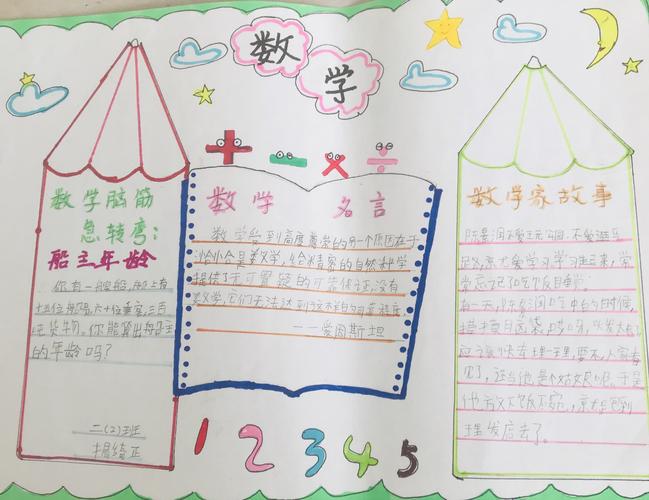 数学
数学脑筋
急转弯:
船主年龄
你有一艘船,船上有
十五位船员,六十位乘客,三百
吨货物,你能算出船主
的年龄吗?
二(2)班
数学 名言
数学受到高度尊崇的另一个原因在于
恰恰是数学,给精密的自然科学
提供了无可置疑的可靠保证,没有
数学,它们无法达到这样的可靠程度
——爱因斯坦
数学家故事
陈景润不爱玩公园,不爱逛马
路,就爱学习。学习起来,常
常忘记了吃饭睡觉。
有一天,陈景润吃中饭的时候,
摸摸自己的脑袋,哎呀,头发太长了
应该快去理一理,要不,人家看
见了,还当他是个姑娘呢。于是
他放下饭碗,就跑到
理发店去了。
1 2 3 4 5